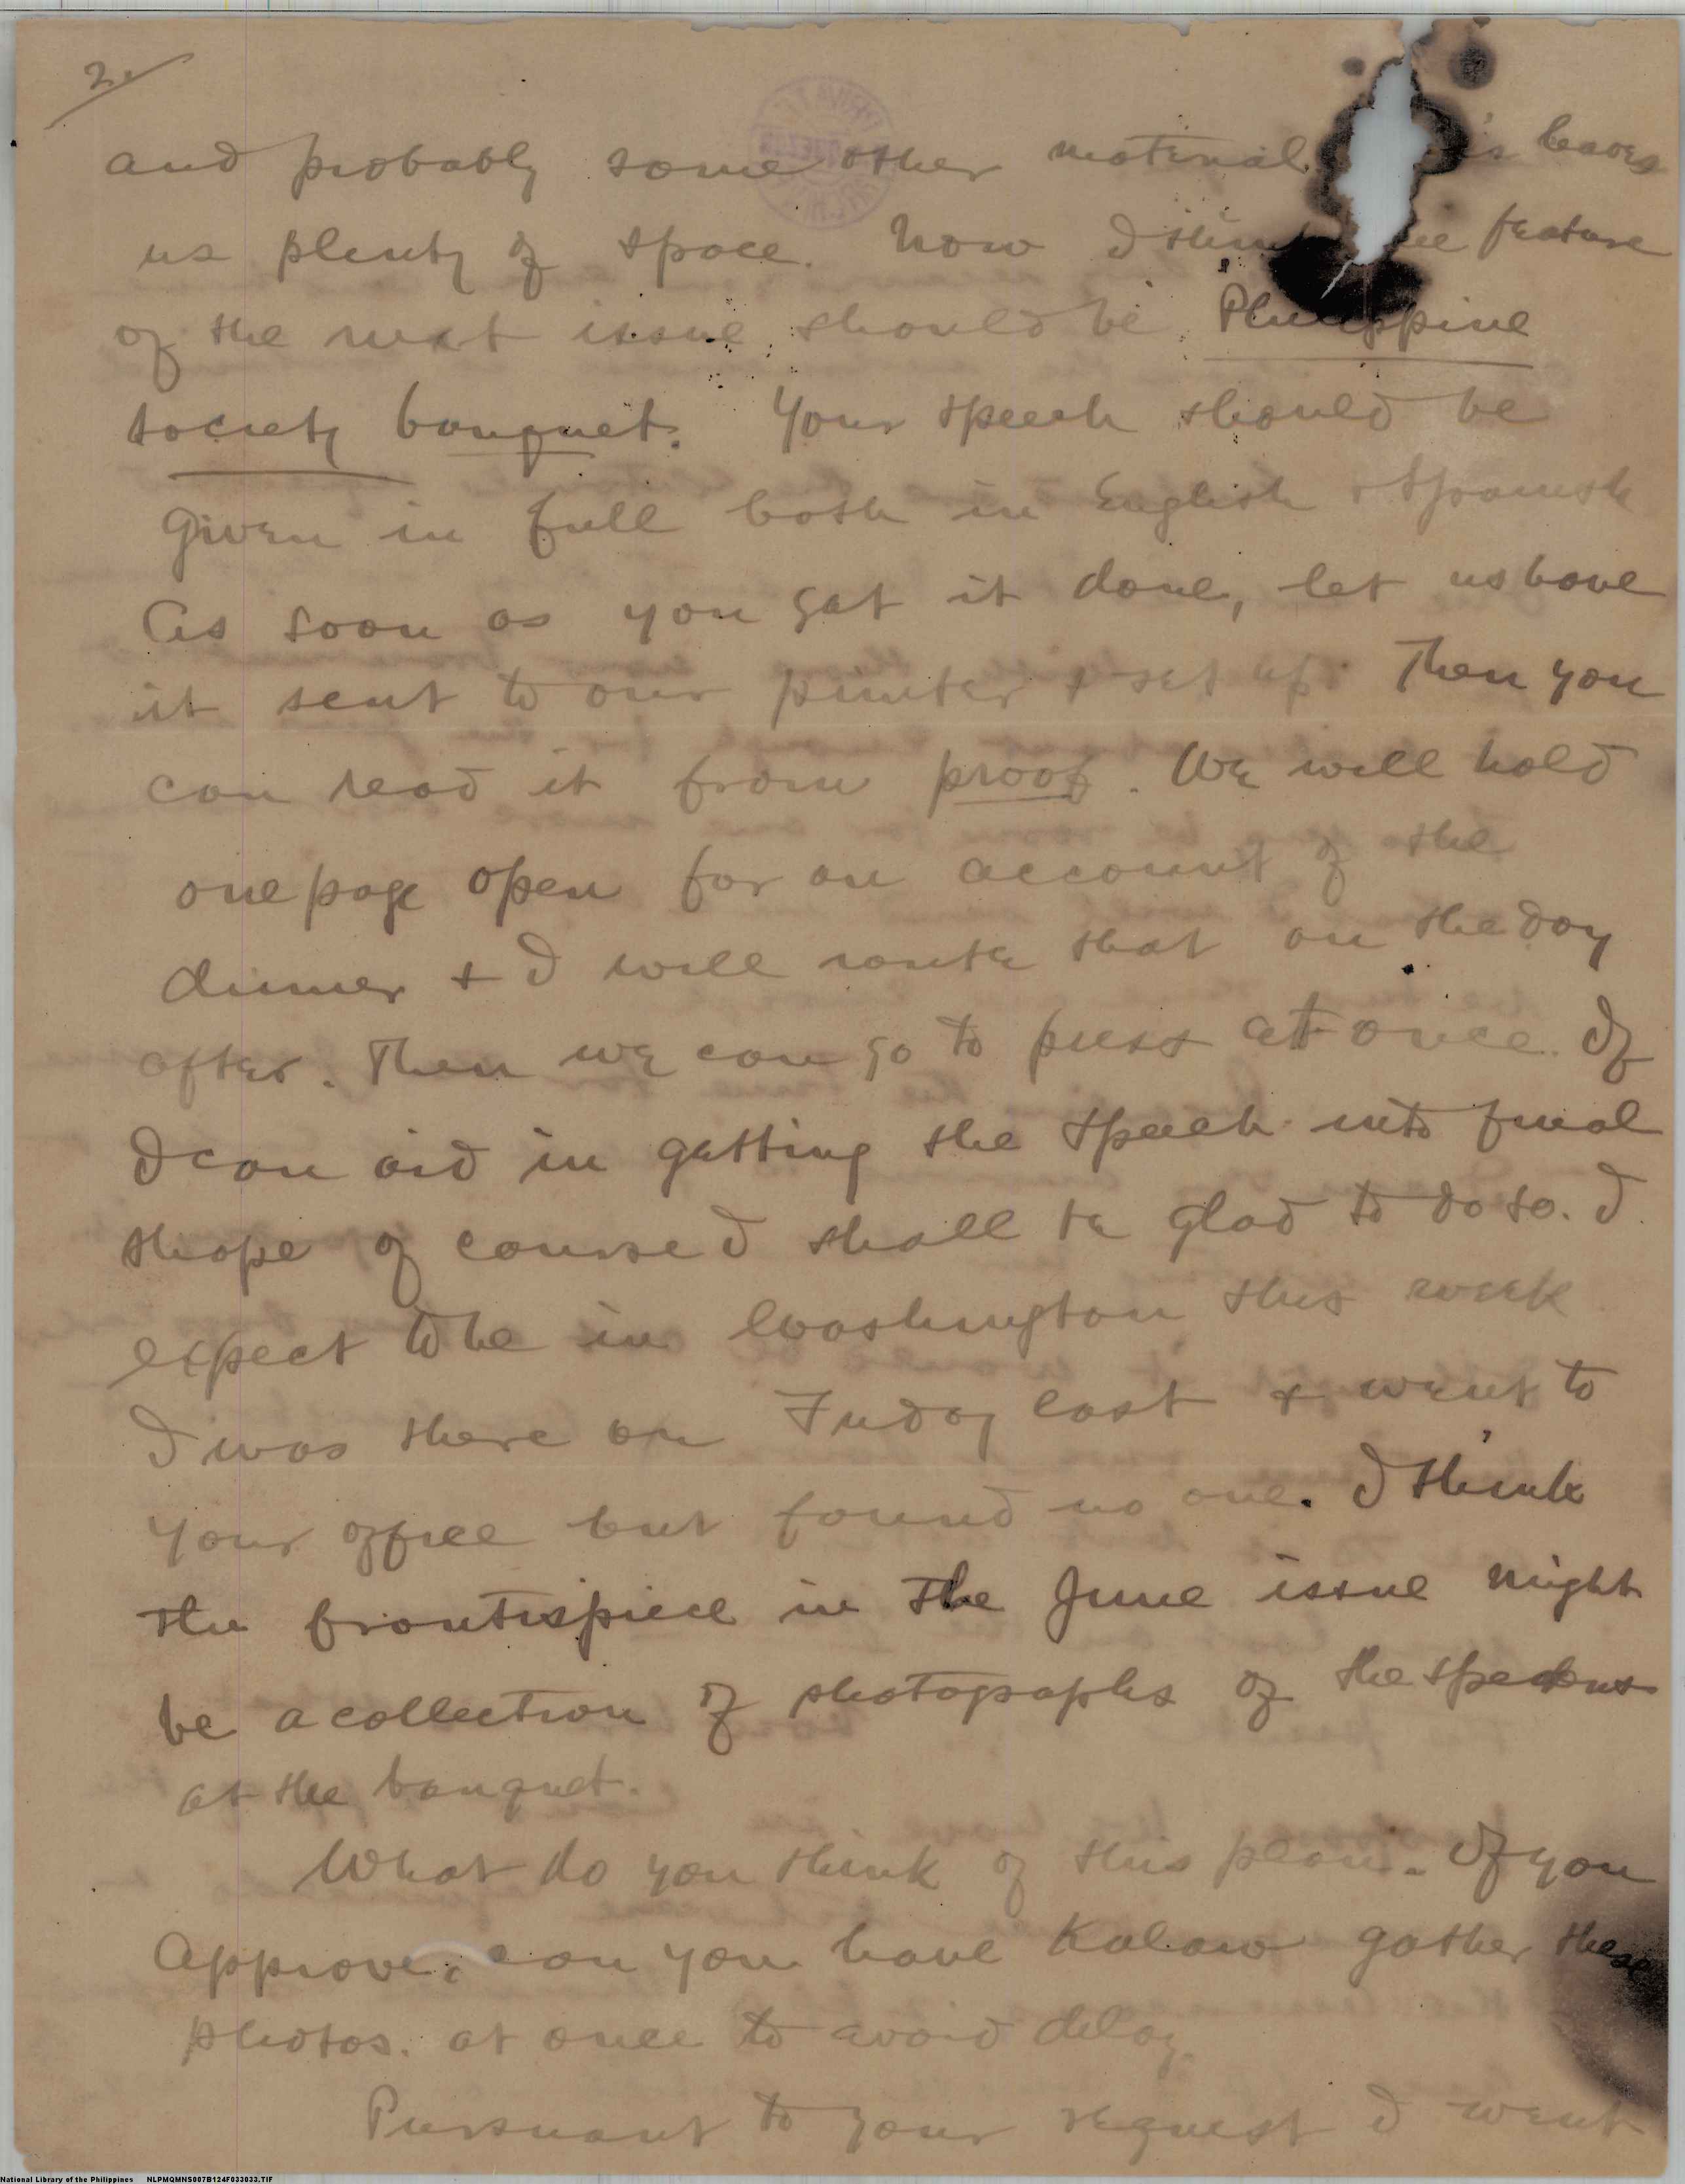 2.
and probably some other material is leaves
us plenty of space. Now I think the feature
of the next issue should be Philippine
Society banquet. Your speech should be
given in full both in English & Spanish
As soon as you get it done, let us have
it sent to our printer & set up. Then you
can read it from proof. We will hold
one page open for an account of the
dinner & I will write that on the day
after. Then we can go to press at once. If
I can aid in getting the speech into final
shape of course I shall be glad to do so. I
expect to be in Washington this week
I was there on Friday last & went to
your office but found no one. I think
the frontispiece in the June issue might
be a collection of photographs of the speakers
at the banquet.
What do you think of this plan. If you
approve, can you have Kalaw gather these
photos. at once to avoid delay.
Pursuant to your request I went
National Library of the Philippines NLPMQMNS007B124F033033.TIF